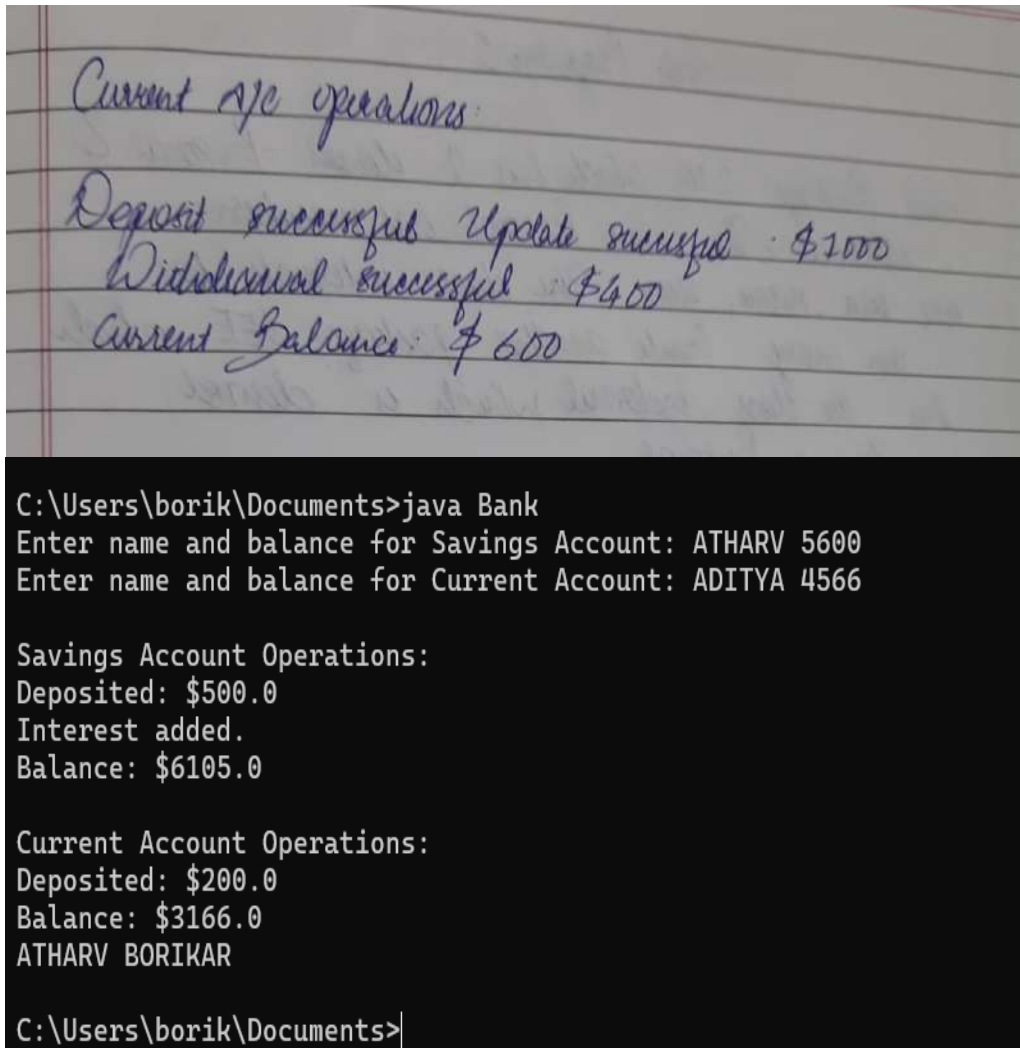 Current A/C operations:
Deposit successful Update successful : $1000
Withdrawal successful : $400
Current Balance: $600
C:\Users\borik\Documents>java Bank
Enter name and balance for Savings Account: ATHARV 5600
Enter name and balance for Current Account: ADITYA 4566
Savings Account Operations:
Deposited: $500.0
Interest added.
Balance: $6105.0
Current Account Operations:
Deposited: $200.0
Balance: $3166.0
ATHARV BORIKAR
C:\Users\borik\Documents>